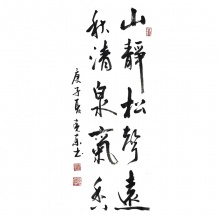 山静松聲遠
秋清泉氣香
庚子夏